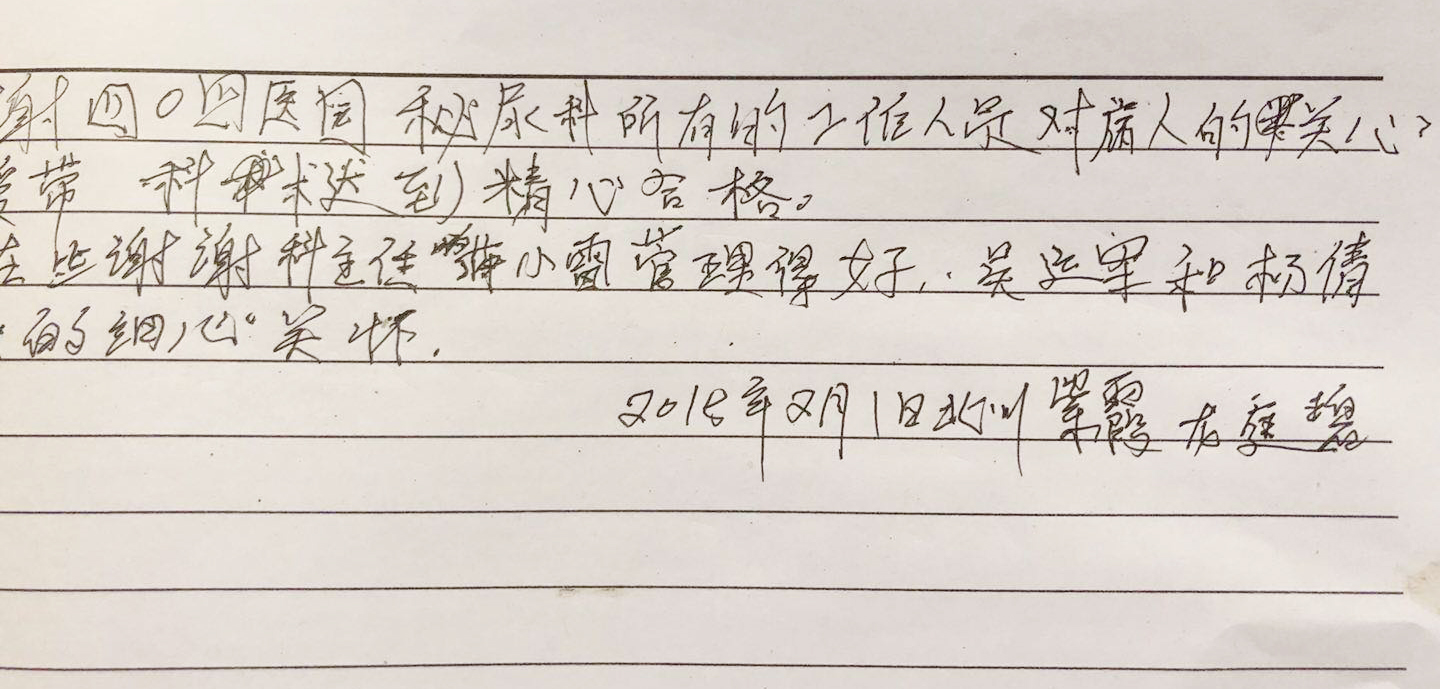 谢四0四医园 秘尿科所有的工作人员对病人的关心
爱带 科术送到精心合格。
在些谢谢科主任小雷管理得好.吴运军和杨倩
的细心关怀.
2018年2月1日北川紫霞